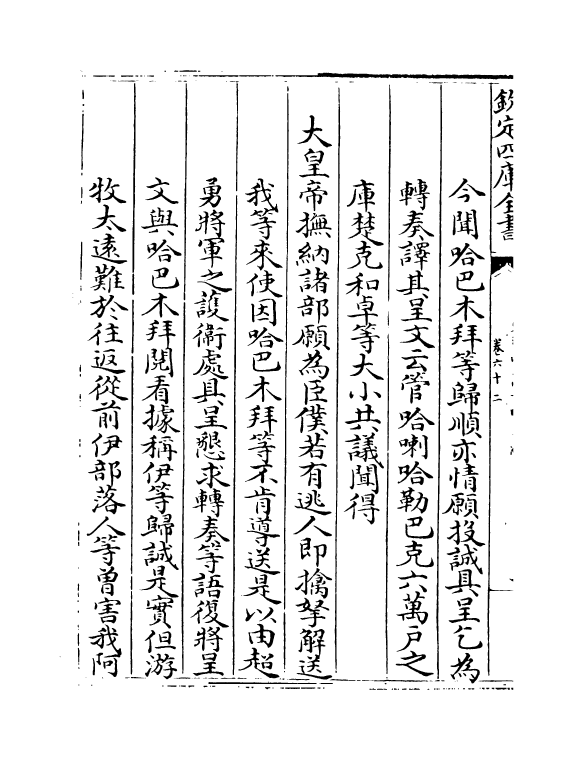 欽定四庫全書
卷六十二
今聞哈巴木拜等歸順亦情願投誠具呈乞為
轉奏譯其呈文云管哈喇哈勒巴克六萬戶之
庫楚克和卓等大小共議聞得
大皇帝撫納諸部願為臣僕若有逃人即擒拏解送
我等來使因哈巴木拜等不肯導送是以由超
勇將軍之護衛處具呈懇求轉奏等語復將呈
文與哈巴木拜閱看據稱伊等歸誠是實但游
牧太遠難於往返從前伊部落人等曾害我阿